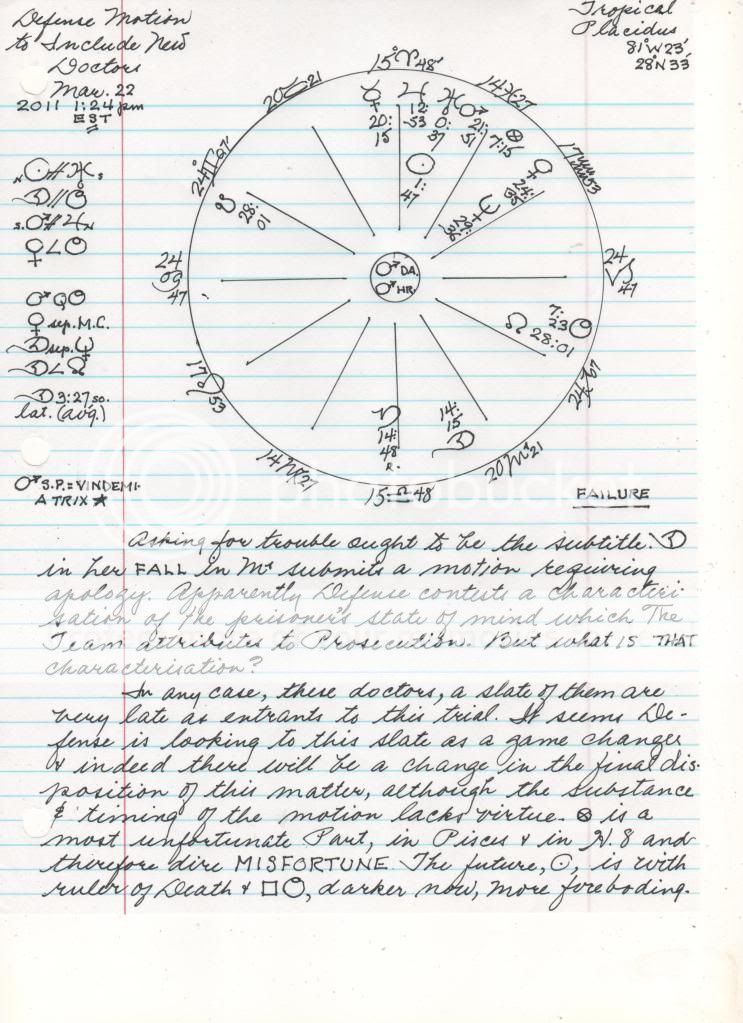 Defense Motion
to Include New
Doctors
Mar. 22
2011 1:24 pm
EST
Tropical
Placidus
81°W23'
28°N33'
15°♈48'
14♓27
17♒53
24♑47
24♐07
20♏21
15♎48
14♍27
17♌53
24♋47
24♊07'
20♉21
☿ 20:15
♃ 12:53
♅ 0:37
♂ 21:51
☉ 1:47
⊗ 7:15
♀ 24:
♆
☋ 28:01
☊ 28:01
7:23
♄ 14:48 R.
☽ 14:15
♂ DA.
♂ HR.
☽//
♀∠
♂Q
♀ sep. M.C.
☽ sep. ♆
☽∠☊
☽ 3:27 so.
lat. (avg.)
♂ S.P. = VINDEMI-
ATRIX ★
FAILURE
Asking for trouble ought to be the subtitle. ☽
in her FALL in ♏ submits a motion requiring
apology. Apparently Defense contests a characteri-
sation of the prisoner's state of mind which The
Team attributes to Prosecution. But what IS THAT
characterisation?
In any case, these doctors, a slate of them are
very late as entrants to this trial. It seems De-
fense is looking to this slate as a game changer
& indeed there will be a change in the final dis-
position of this matter, although the substance
& timing of the motion lacks virtue. ⊗ is a
most unfortunate Part, in Pisces & in H 8 and
therefore dire MISFORTUNE. The future, ☉, is with
ruler of Death & □ , darker now, more foreboding.